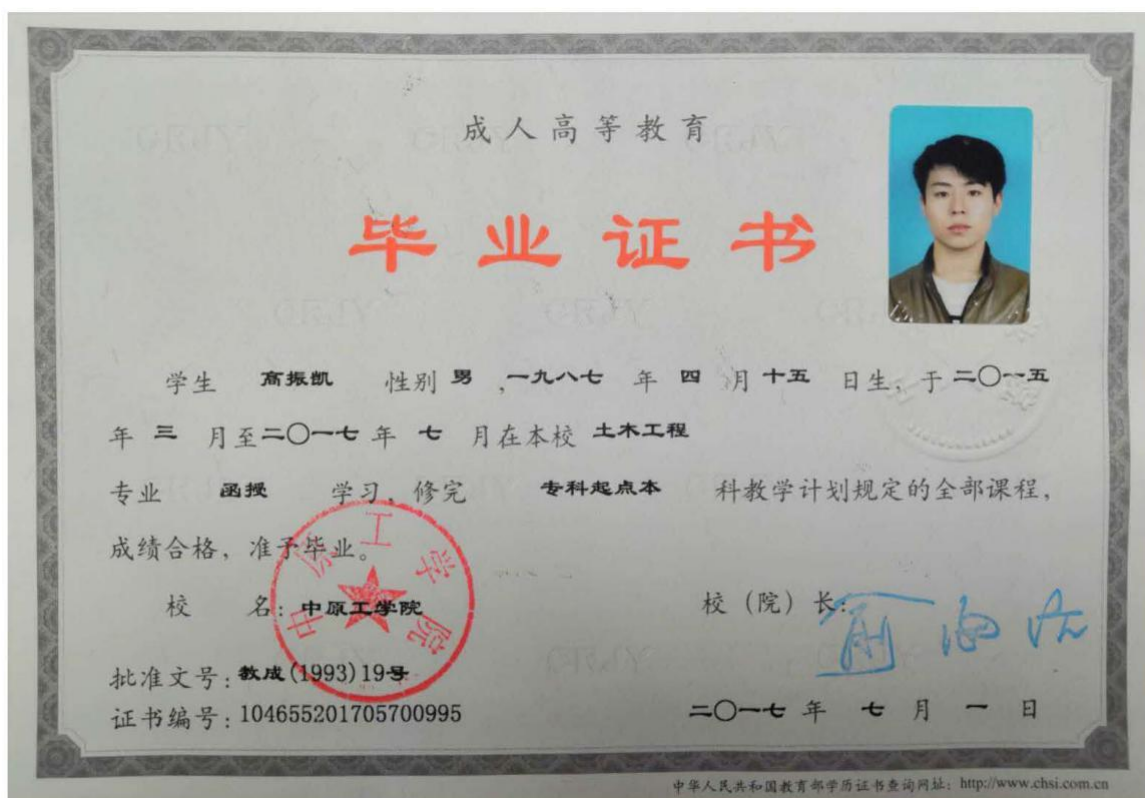 成人高等教育
毕业证书
学生 高振凯 性别 男 ,一九八七 年 四 月 十五 日生, 于 二〇一五
年 三 月至 二〇一七 年 七 月在本校 土木工程
专业 函授 学习, 修完 专科起点本 科教学计划规定的全部课程,
成绩合格, 准予毕业。
校 名: 中原工学院
校（院）长:
中原工学院
批准文号: 教成(1993)19号
证书编号: 104655201705700995
二〇一七 年 七 月 一 日
中华人民共和国教育部学历证书查询网址: http://www.chsi.com.cn